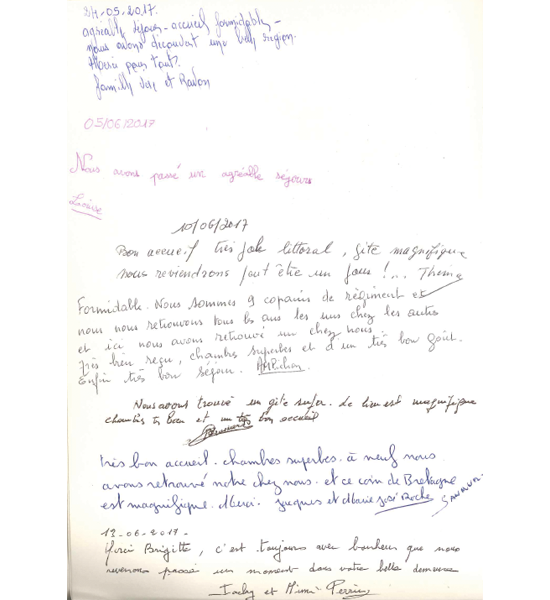 24.05.2017.
agréable séjour - accueil formidable -
nous avons découvert une belle région.
Merci pour tout.
famille et
03/06/2017
Nous avons passé un agréable séjours
Louise
10/06/2017
Bon accueil très joli littoral, gîte magnifique
nous reviendrons peut être un jour !...
Formidable. Nous sommes 9 copains de régiment et
nous nous retrouvons tous ls ans les uns chez les autres
et ici nous avons retrouvé un chez nous.
Très bien reçu, chambre superbes et d'un très bon goût.
Enfin très bon séjour.
Nous avons trouvé un gîte super. Le lieu est magnifique
chambres ts beau et un très bon accueil
très bon accueil. chambres superbes. à neuf nous
avons retrouvé notre chez nous. et ce coin de Bretagne
est magnifique. Merci. Jacques et Marie José Roche
13-06-2017.
Merci Brigitte, c'est toujours avec bonheur que nous
revenons passer un moment dans votre belle demeure
Jacky et Mimi Perrin